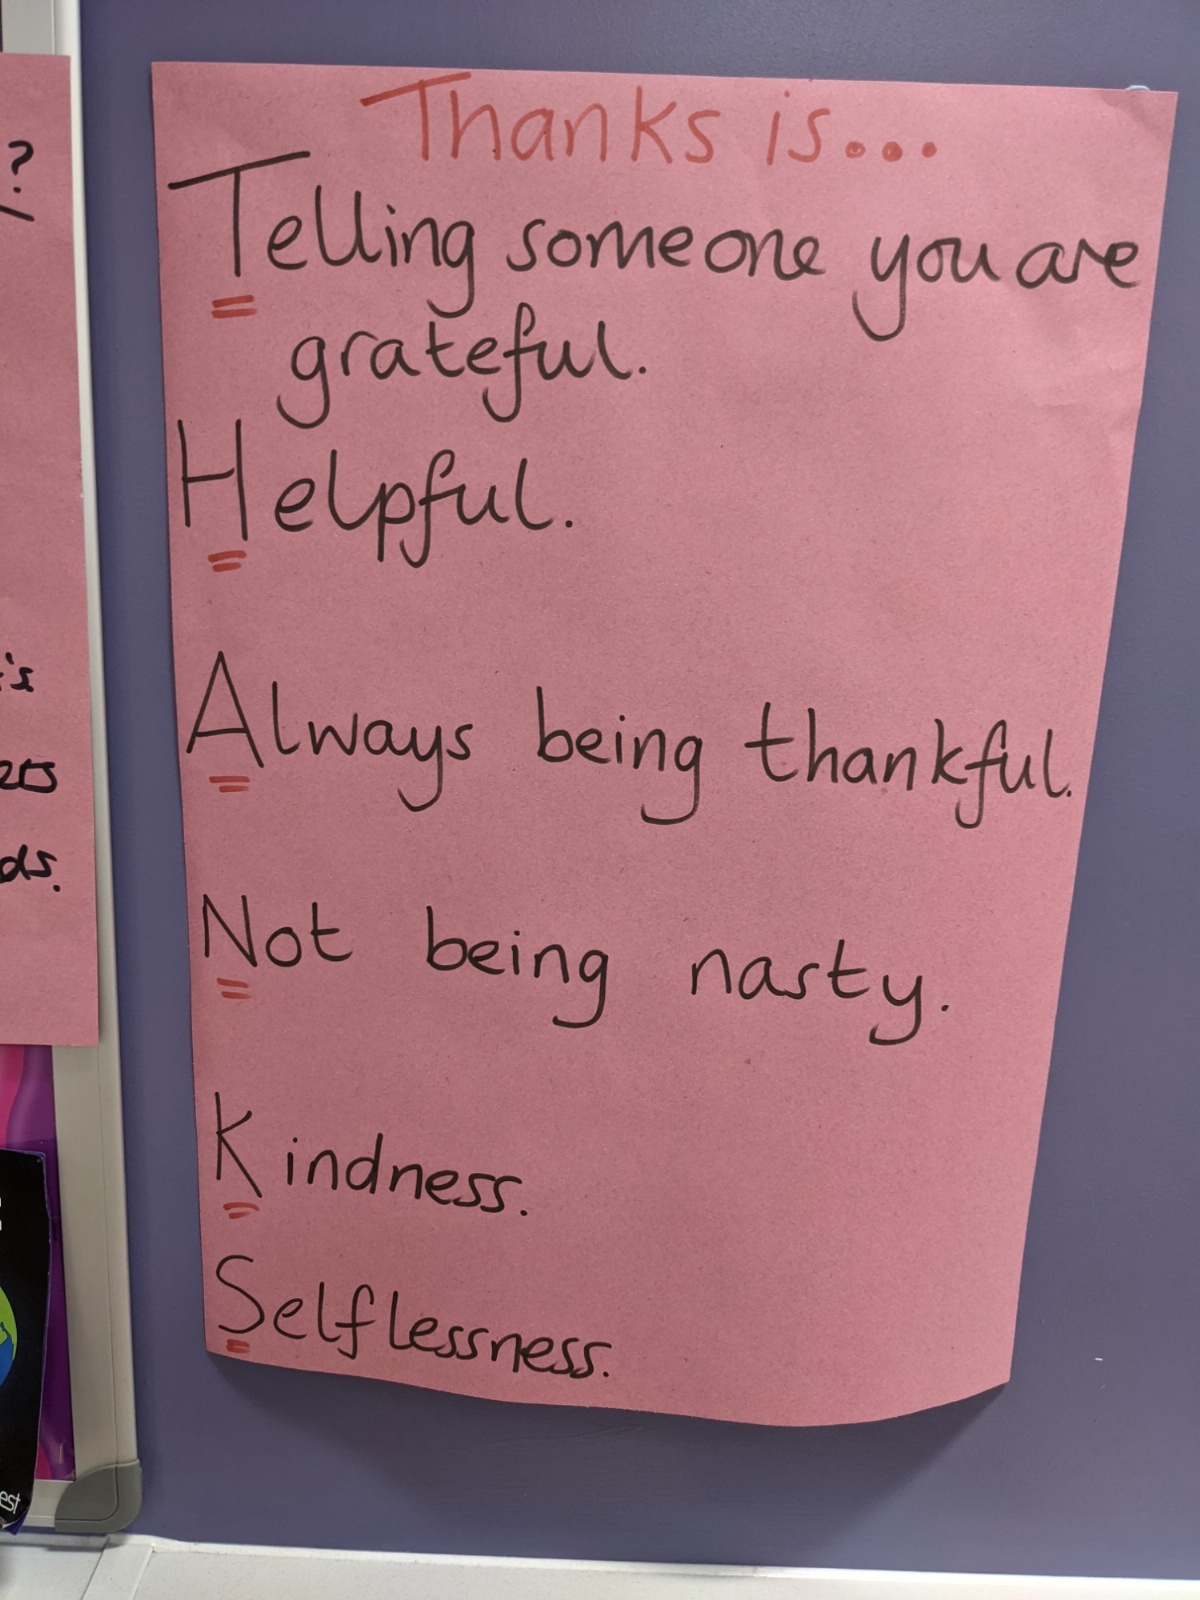 Thanks is...
Telling someone you are
grateful.
Helpful.
Always being thankful.
Not being nasty.
Kindness.
Selflessness.
?
ds.